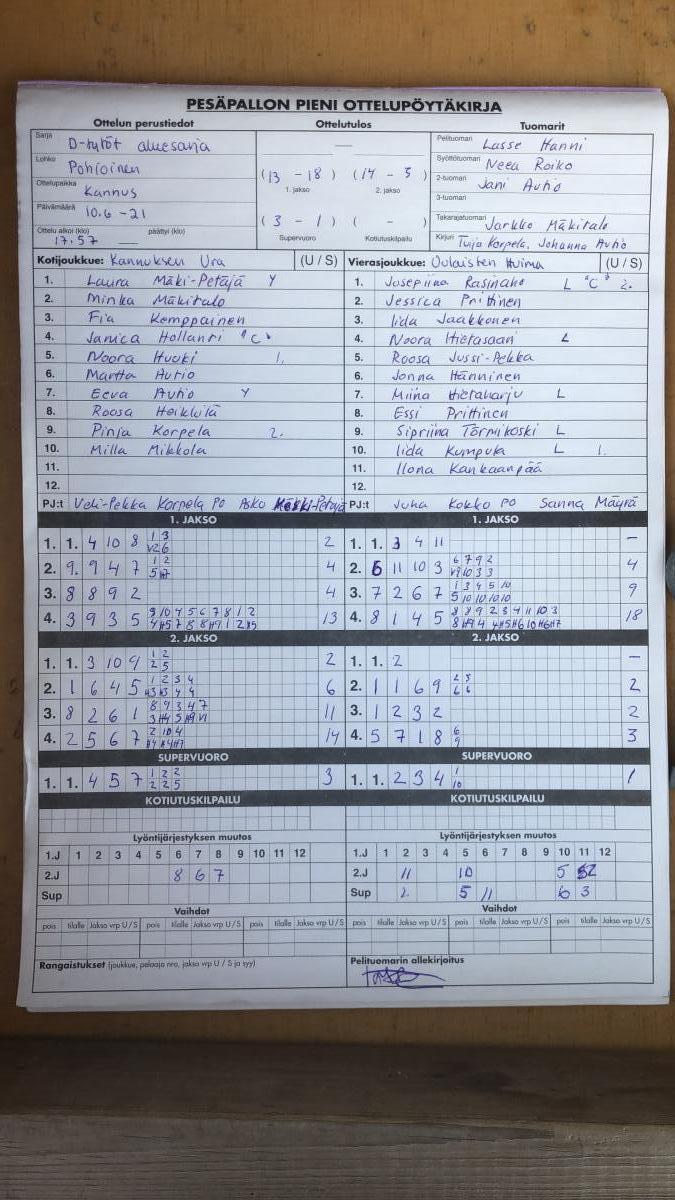 PESÄPALLON PIENI OTTELUPÖYTÄKIRJA
Ottelun perustiedot Ottelutulos Tuomarit
Sarja D-tytöt aluesarja
Lohko Pohjoinen
Ottelupaikka Kannus
Päivämäärä 10.6 -21
Ottelu alkoi (klo) 17.57 päättyi (klo)
(13 - 18) (14 - 3)
1. jakso 2. jakso
(3 - 1) ( - )
Supervuoro Kotiutuskilpailu
Pelituomari Lasse Hanni
Syöttötuomari Neea Roiko
2-tuomari Jani Autio
3-tuomari
Takarajatuomari Jarkko Mäkitalo
Kirjuri Tuija Korpela, Johanna Autio
Kotijoukkue: Kannuksen Ura (U / S)
1. Laura Mäki-Petäjä Y
2. Minka Mäkitalo
3. Fia Kemppainen
4. Janica Hollanti "C"
5. Noora Huuki 1.
6. Martta Autio
7. Eeva Autio Y
8. Roosa Heikkilä
9. Pinja Korpela 2.
10. Milla Mikkola
11.
12.
PJ:t Veli-Pekka Korpela PO Asko Mäki-Petäjä
Vierasjoukkue: Oulaisten Huima (U / S)
1. Josepiina Rasinaho L "C" 2.
2. Jessica Prittinen
3. Iida Jaakkonen
4. Noora Hietasaari L
5. Roosa Jussi-Pekka
6. Jonna Hänninen
7. Miina Hietaharju L
8. Essi Prittinen
9. Sipriina Törmikoski L
10. Iida Kumpula L 1.
11. Ilona Kankaanpää
12.
PJ:t Juha Kokko PO Sanna Mäyrä
1. JAKSO 1. JAKSO
1. 1. 4 10 8 2
2. 9. 9 4 7 4
3. 8 8 9 2 4
4. 3 9 3 5 13
1. 1. 3 4 11 –
2. 6 11 10 3 4
3. 7 2 6 7 9
4. 8 1 4 5 18
2. JAKSO 2. JAKSO
1. 1. 3 10 9 2
2. 1 6 4 5 6
3. 8 2 6 1 11
4. 2 5 6 7 14
1. 1. 2 –
2. 1 1 6 9 2
3. 1 2 3 2 2
4. 5 7 1 8 3
SUPERVUORO SUPERVUORO
1. 1. 4 5 7 1 2 2 3
2 2 5
1. 1. 2 3 4 1 1
10
KOTIUTUSKILPAILU KOTIUTUSKILPAILU
Lyöntijärjestyksen muutos Lyöntijärjestyksen muutos
1.J 1 2 3 4 5 6 7 8 9 10 11 12
2.J 8 6 7
Sup
1.J 1 2 3 4 5 6 7 8 9 10 11 12
2.J 11 10 5 2
Sup 2 5 11 6 3
Vaihdot Vaihdot
pois tilalle Jakso vrp U / S pois tilalle Jakso vrp U / S
pois tilalle Jakso vrp U / S pois tilalle Jakso vrp U / S
Rangaistukset (joukkue, pelaaja nro, jakso vrp U / S ja syy)
Pelituomarin allekirjoitus